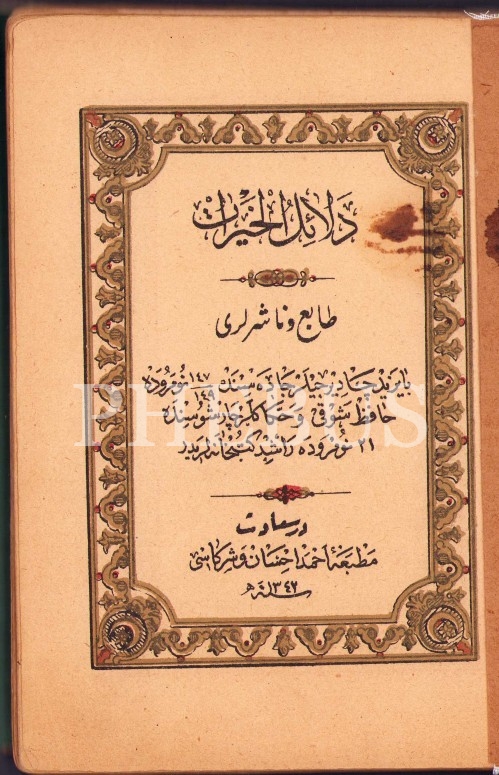 دلائل الخيرات
طابع و ناشرلری
بایزید جادرجیلر جاده سنده ١٤٧ نومروده
١٤٩
حافظ شوقی و حكاكلر چارشوسنده
٢١ نومروده راشد كتبخانه لریدر
PHEBUS
درسعادت
مطبعۀ احمد احسان و شركاسی
سنه ١٣٤٢ ھ